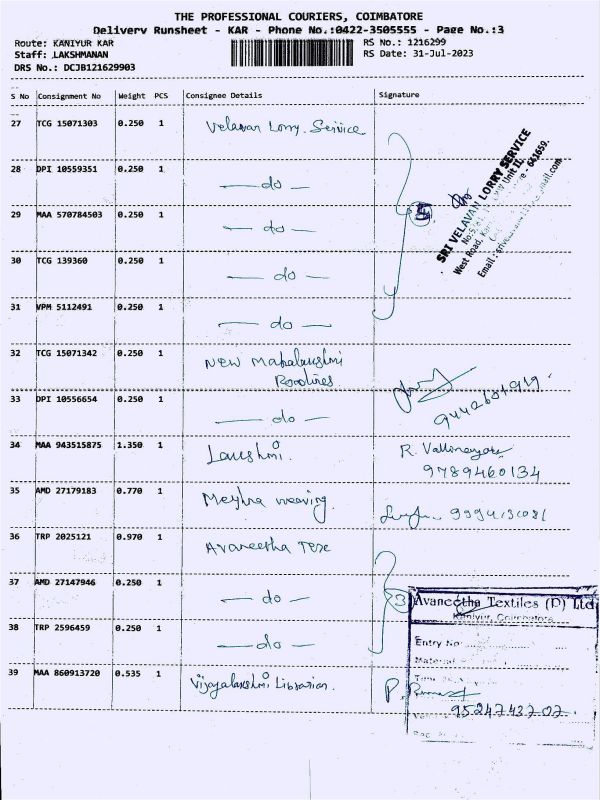 THE PROFESSIONAL COURIERS, COIMBATORE
Delivery Runsheet - KAR - Phone No.:0422-3505555 - Page No.:3
Route: KANIYUR KAR RS No.: 1216299
Staff: LAKSHMANAN RS Date: 31-Jul-2023
DRS No.: DCJB121629903
S No Consignment No Weight PCS Consignee Details Signature
27 TCG 15071303 0.250 1 Velavan Lorry. Service
28 DPI 10559351 0.250 1 — do —
29 MAA 570784503 0.250 1 — do —
30 TCG 139360 0.250 1 — do —
31 VPM 5112491 0.250 1 — do —
SRI VELAVAN LORRY SERVICE
Unit II,
West Road, 641659.
Email :
32 TCG 15071342 0.250 1 New Mahalakshmi
33 DPI 10556654 0.250 1 — do —
34 MAA 943515875 1.350 1 Lakshmi. R.
9789460134
35 AMD 27179183 0.770 1 weaving
36 TRP 2025121 0.970 1 Avaneetha Tex
37 AMD 27147946 0.250 1 — do — 3
38 TRP 2596459 0.250 1 — do —
Avaneetha Textiles (P) Ltd
Kaniyur, Coimbatore
Entry No
39 MAA 860913720 0.535 1 Vijayalakshmi P.
9524743702.